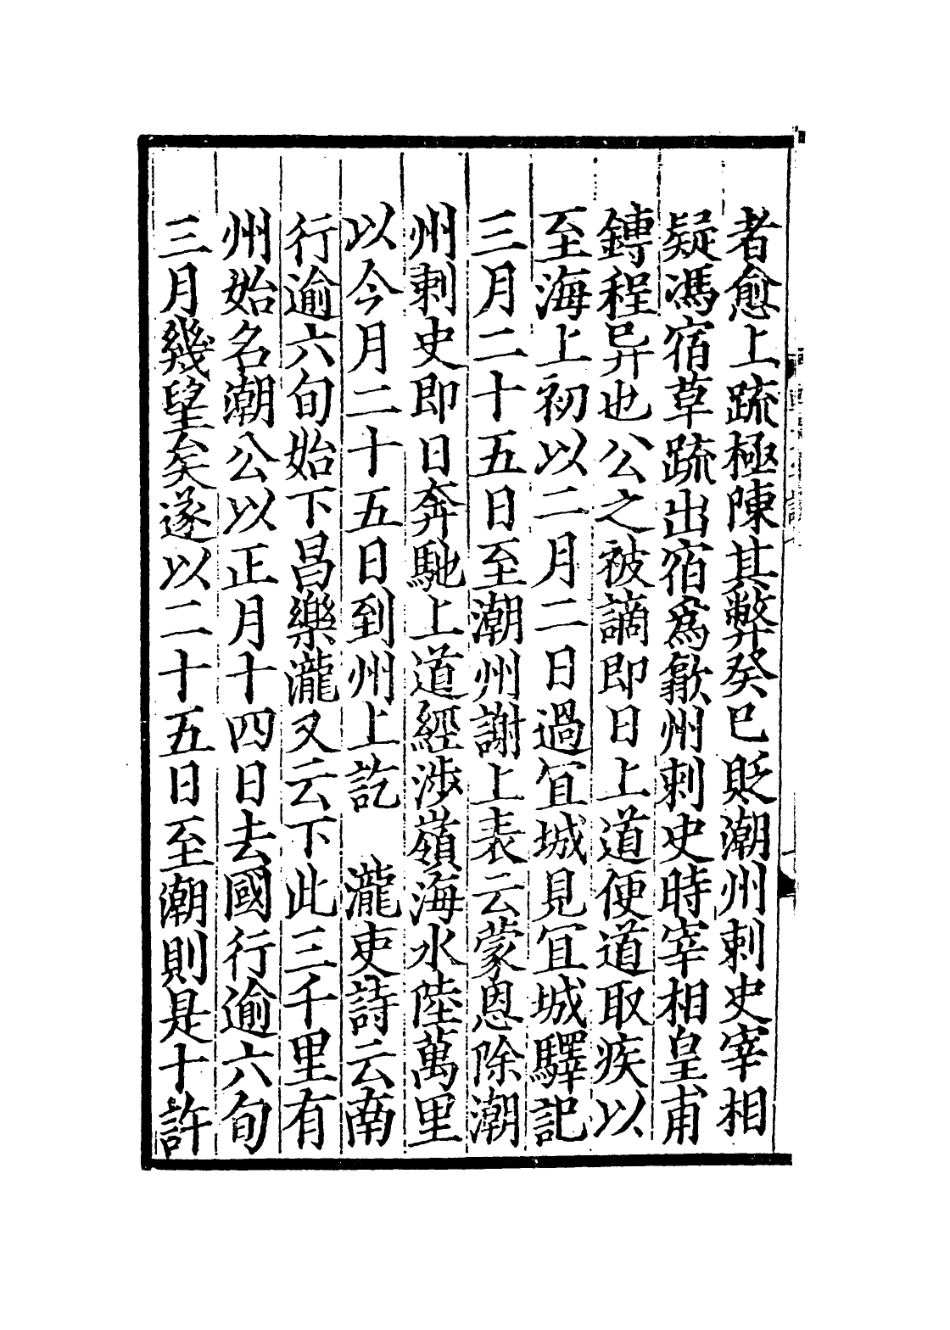 者愈上䟽極陳其弊癸巳貶潮州刺史宰相
疑馮宿草䟽出宿爲歙州刺史時宰相皇甫
鎛程异也公之被謫即日上道便道取疾以
至海上初以二月二日過宜城見宜城驛記
三月二十五日至潮州謝上表云蒙恩除潮
州刺史即日奔馳上道經涉嶺海水陸萬里
以今月二十五日到州上訖　瀧吏詩云南
行逾六旬始下昌樂瀧又云下此三千里有
州始名潮公以正月十四日去國行逾六旬
三月幾望矣遂以二十五日至潮則是十許